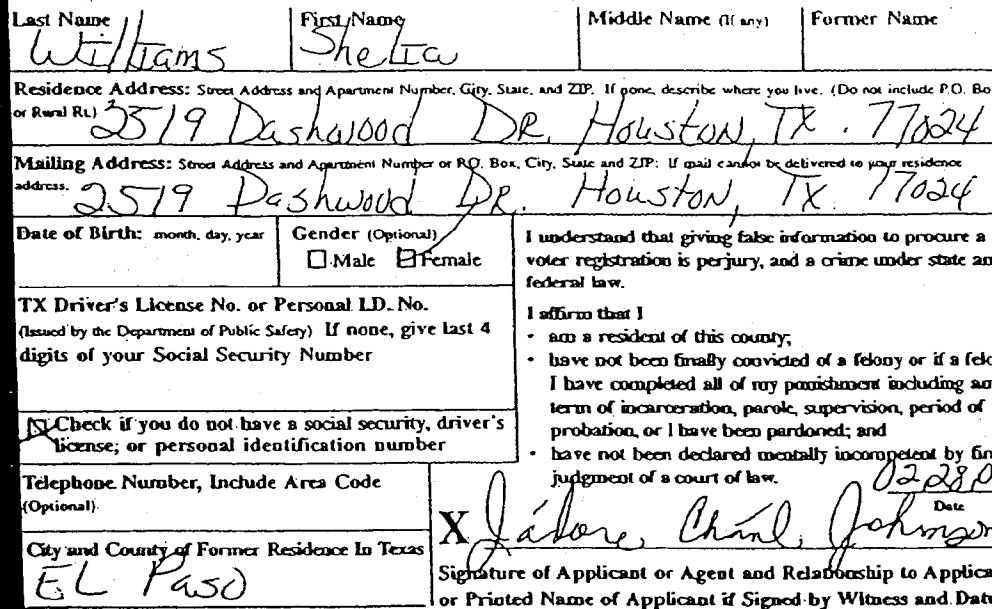 Last Name First Name Middle Name (If any) Former Name
Williams Shelia
Residence Address: Street Address and Apartment Number, City, State, and ZIP. If none, describe where you live. (Do not include P.O. Bo
or Rural Rt.) 2519 Dashwood DR. Houston, TX. 77024
Mailing Address: Street Address and Apartment Number or P.O. Box, City, State and ZIP: If mail cannot be delivered to your residence
address. 2519 Dashwood DR. Houston, TX. 77024
Date of Birth: month, day, year Gender (Optional)
Male Female
TX Driver's License No. or Personal I.D. No.
(Issued by the Department of Public Safety) If none, give last 4
digits of your Social Security Number
Check if you do not have a social security, driver's
license; or personal identification number
Telephone Number, Include Area Code
(Optional)
City and County of Former Residence In Texas
EL Paso
I understand that giving false information to procure a
voter registration is perjury, and a crime under state an
federal law.
I affirm that I
• am a resident of this county;
• have not been finally convicted of a felony or if a felo
I have completed all of my punishment including an
term of incarceration, parole, supervision, period of
probation, or I have been pardoned; and
• have not been declared mentally incompetent by fin
judgment of a court of law. 02280
Date
X Johnson
Signature of Applicant or Agent and Relationship to Applica
or Printed Name of Applicant if Signed by Witness and Date